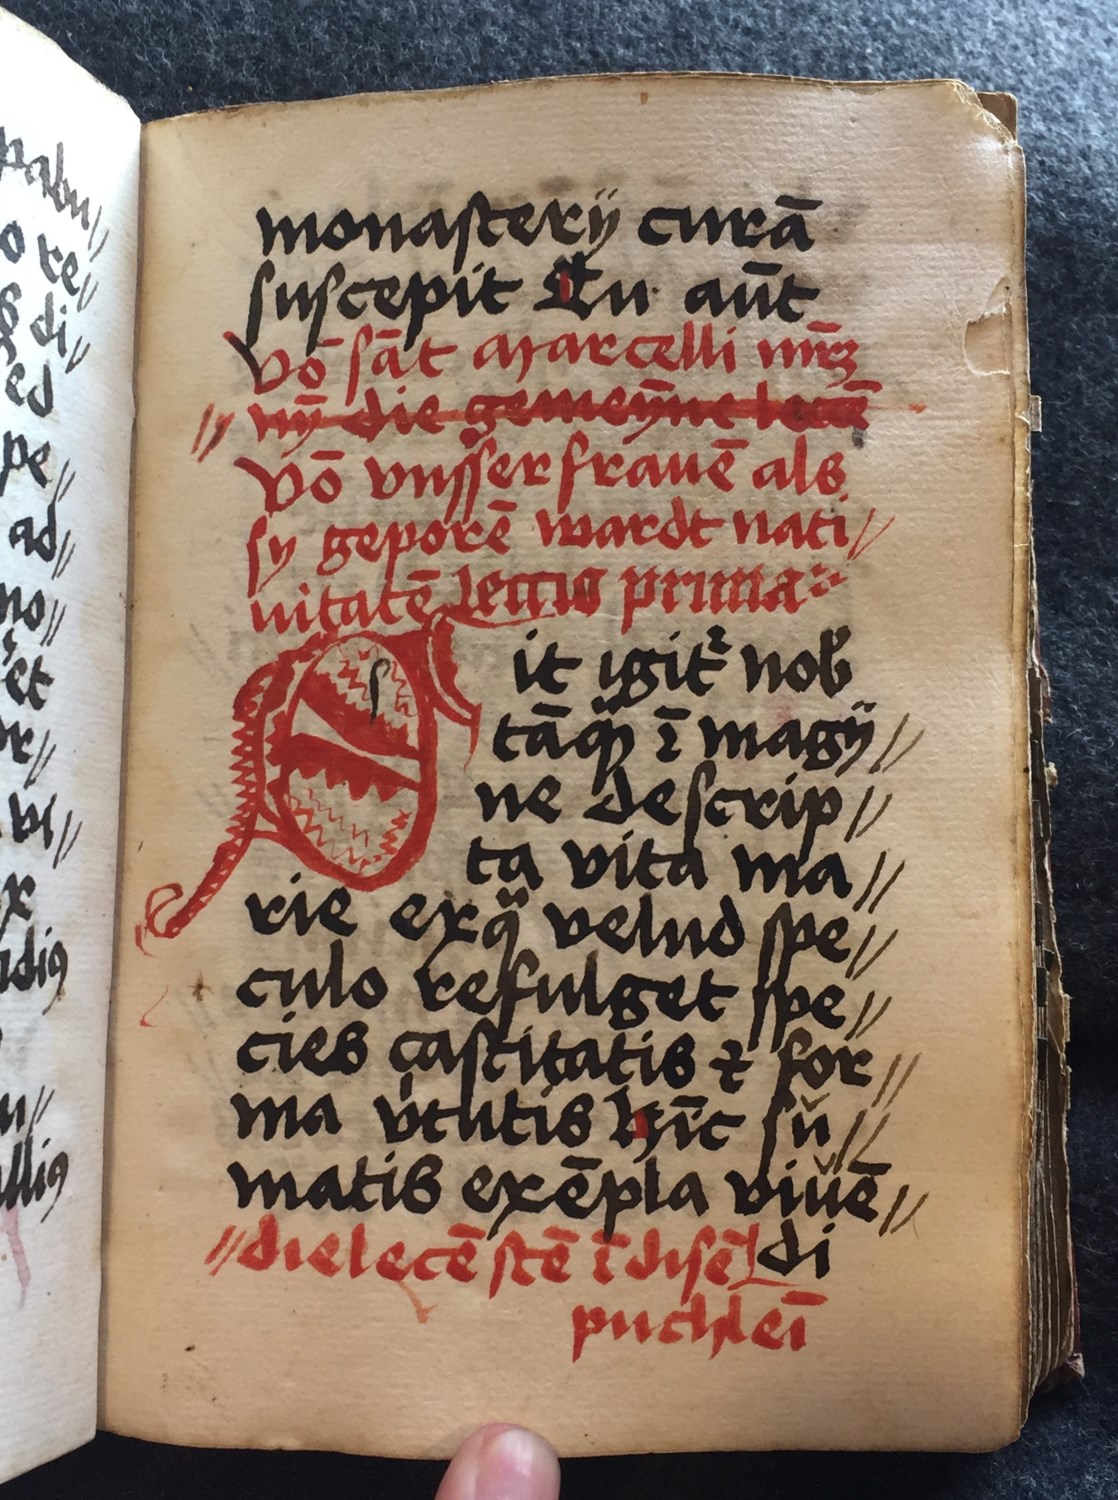 pabu//
o re//
di//
ed
pe//
ad//
no//
et
vi//
ex
u//
monasterÿ curā
suscepit Tu aūt
Vō sāt Marcelli
nÿ die gemeȳne lecē
Vō vnsser frauē als
sy geporē wardt nati//
uitatē Lectio prima
Sit igitr nob
tāqꝫ ī magÿ//
ne descrip//
ta vita ma//
rie ex q̄ velud spe//
culo refulget spe//
cies castitatis ꝛ for//
ma v̓tutis hīc sū//
matis exēpla viuē//
di
//die lecē stē ī disē
puchleī